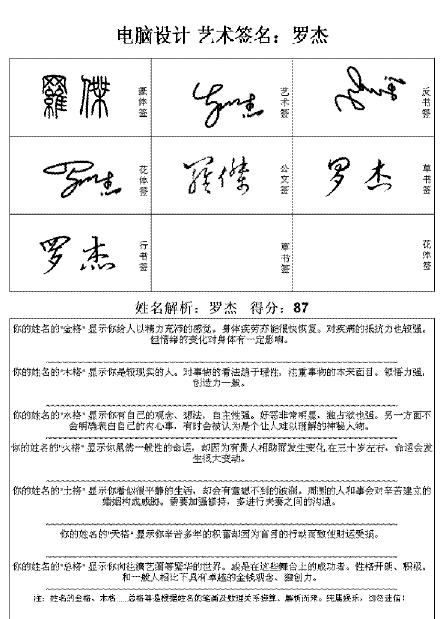 电脑设计 艺术签名：罗杰
羅傑
篆体签
艺术签
反书签
花体签
羅傑
公文签
罗杰
草书签
罗杰
行书签
草书签
花体签
姓名解析：罗杰 得分：87
你的姓名的"金格"显示你给人以精力充沛的感觉。身体疾劳亦能很快恢复。对疾病的抵抗力也较强。
但情绪的变化对身体有一定影响。
你的姓名的"木格"显示你是较现实的人。对事物的看法趋于理性，注重事物的本来面目。领悟力强，
创造力一般。
你的姓名的"水格"显示你有自己的观念、想法，自主性强。好恶非常明显，独占欲也强。另一方面不
会明确表白自己的内心事，有时会被认为是个让人难以理解的神秘人物。
你的姓名的"火格"显示你虽然一般性的命运，却因为有贵人相助而发生变化，在三十岁左右，命运会发
生很大变动。
你的姓名的"土格"显示你看似很平静的生活，却会有意想不到的波澜。周围的人和事会对辛苦建立的
婚姻构成威胁。需要加强领持，多进行夫妻之间的沟通。
你的姓名的"天格"显示你辛苦多年的积蓄却因为盲目的行动而致使财运受损。
你的姓名的"总格"显示你向往演艺圈等繁华的世界。或是在这些舞台上的成功者。性格开朗、积极。
和一般人相比下具有卓越的金钱观念、独创力。
注：姓名的金格、木格……总格等是根据姓名的笔画及数理关系推算、解析而来。纯属娱乐，切勿迷信！